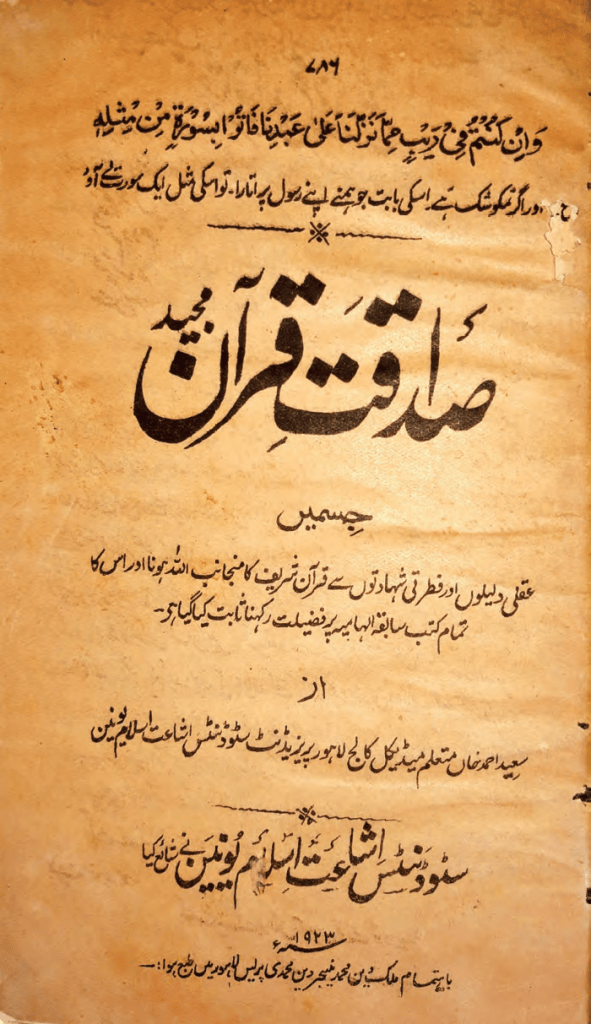 ۷۸۶
وَاِنْ كُنْتُمْ فِيْ رَيْبٍ مِمَّا نَزَّلْنَا عَلٰى عَبْدِنَا فَاتُوْا بِسُوْرَةٍ مِنْ مِثْلِهٖ
اور اگر تمکو شک ہے اسکی بابت جو ہمنے اپنے رسول پر اتارا۔ تو اسکی مثل ایک سورت لے آؤ
صداقت قرآن مجید
جسمیں
عقلی دلیلوں اور فطرتی شہادتوں سے قرآن شریف کا منجانب اللہ ہونا اور اس کا
تمام کتب سابقہ الہامیہ پر فضیلت رکہنا ثابت کیا گیا ہی۔
از
سعید احمد خاں متعلم میڈیکل کالج لاہور پریزیڈنٹ سٹوڈنٹس اشاعت اسلام یونین
سٹوڈنٹس اشاعت اسلام یونین نے شائع کیا
۱۹۲۳ء
باہتمام ملک دین محمد منیجر دین محمدی پریس لاہور میں طبع ہوا:۔